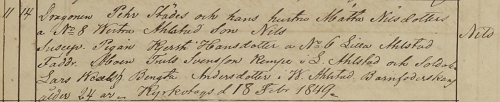 11 14 Dragonen Pehr Städes och hans hustru Mätta Nilsdotters Nils
a No 8 Westra Ahlstad Son Nils
Suscep. Pigan Kjersti Hansdotter a No 6 Lilla Ahlstad
Faddr. Moen Truls Svensson Kempe i L. Ahlstad och Soldat
Lars Bengta Andersdotter i W. Ahlstad, Barnföderskans
ålder 24 år Kyrktogs d 18 Febr 1849.